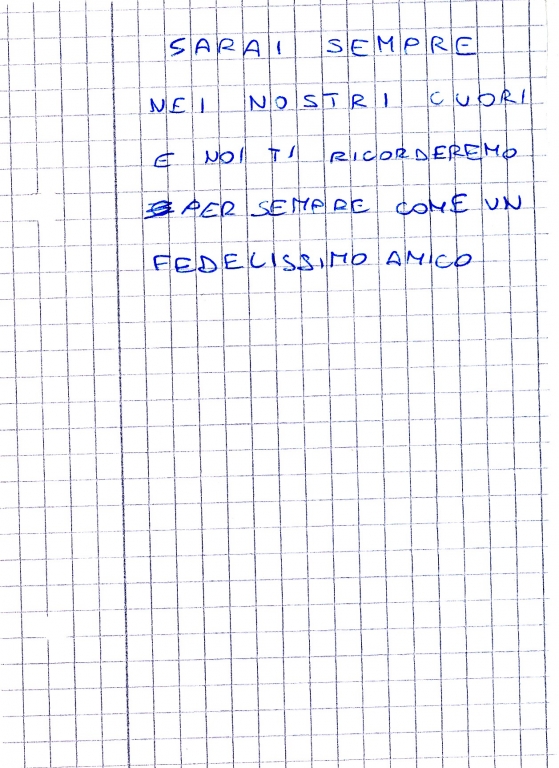 SARAI SEMPRE
NEI NOSTRI CUORI
E NOI TI RICORDEREMO
PER SEMPRE COME UN
FEDELISSIMO AMICO